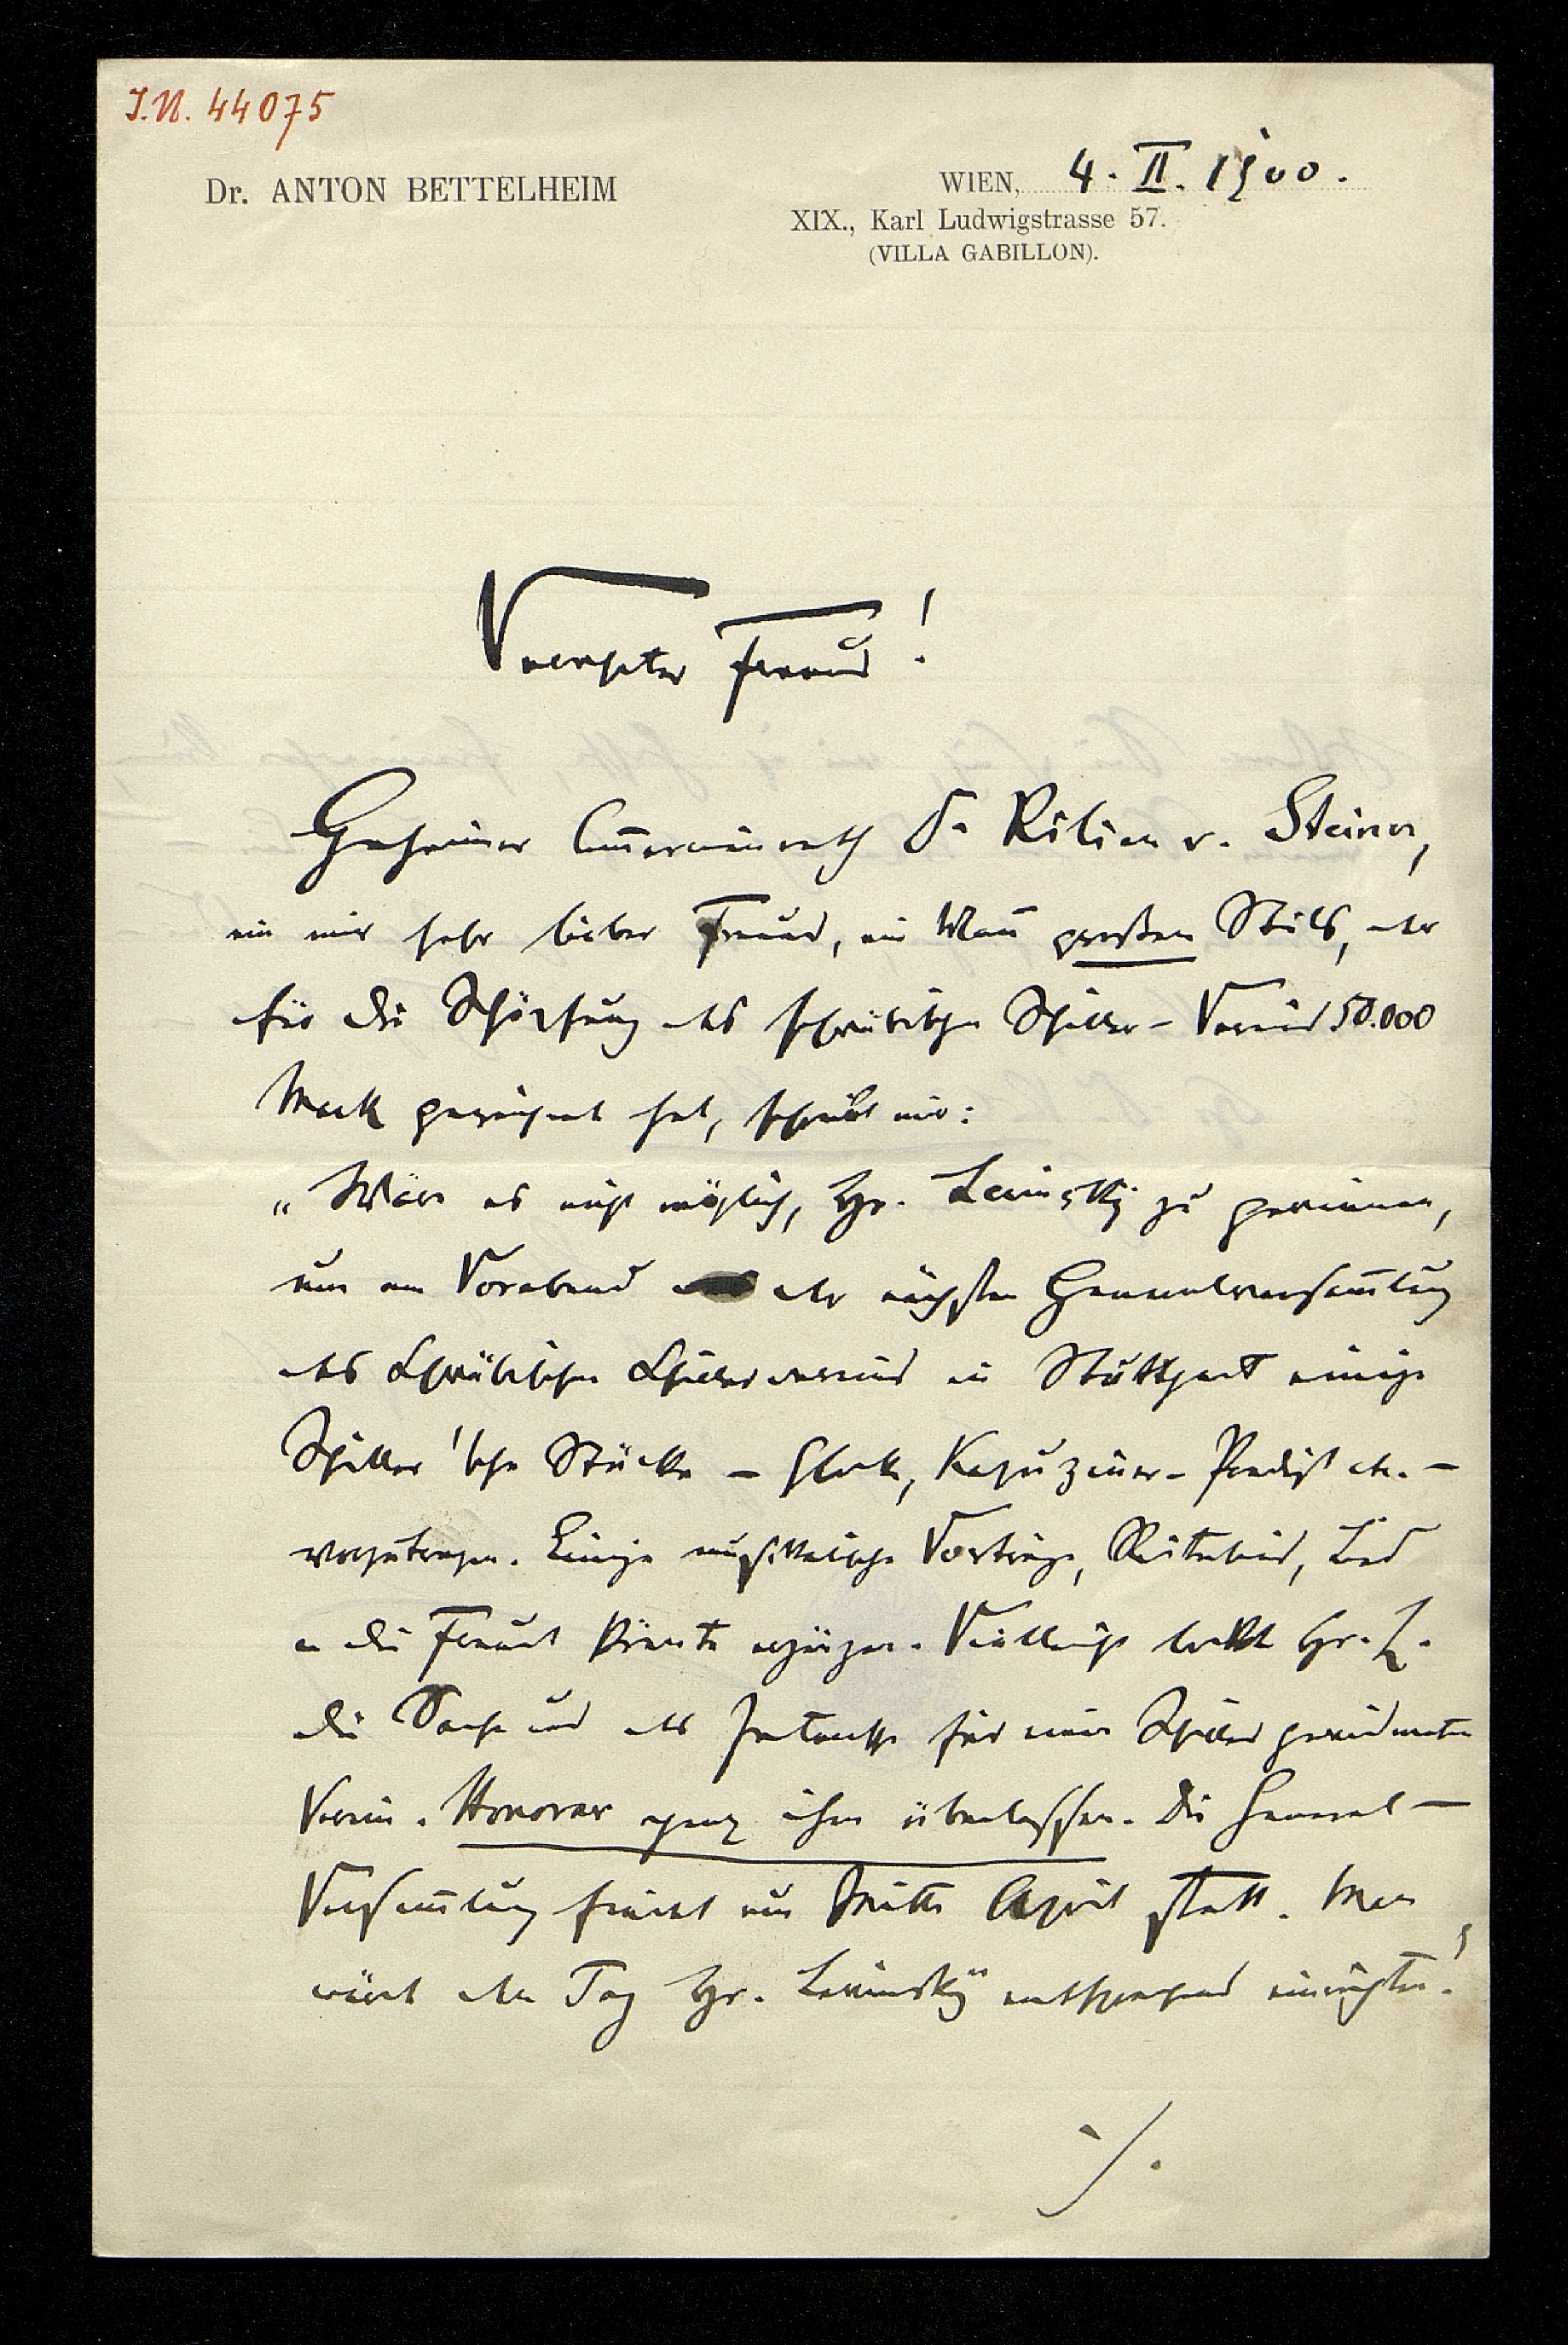 J.N. 44075
Dr. ANTON BETTELHEIM
WIEN, 4. II. 1900.
XIX., Karl Ludwigstrasse 57.
(VILLA GABILLON).
Verehrter Freund!
Geheimer Commerzienrath Dr Kilian v. Steiner,
ein mir sehr lieber Freund, ein Mann großen Stils, der
für die Schöpfung des schwäbischen Schiller-Vereins 50.000
Mark gezeichnet hat, schreibt mir:
„Wäre es nicht möglich, Hr. Lewinsky zu gewinnen,
um am Vorabend der nächsten Generalversammlung
des Schwäbischen Schillervereins in Stuttgart einige
Schiller'sche Stücke – Glocke, Kapuziner-Predigt etc. –
vorzutragen. Einige musikalische Vorträge, Reiterlied, Lied
an die Freude könnte ergänzen. Vielleicht lockt Hr. L.
die Sache und das Interesse für einen Schiller gewidmeten
Verein. Honorar ganz ihm überlassen. Die General-
Versammlung findet um Mitte April statt. Man
würde den Tag Hr. Lewinsky entsprechend einrichten!
./.